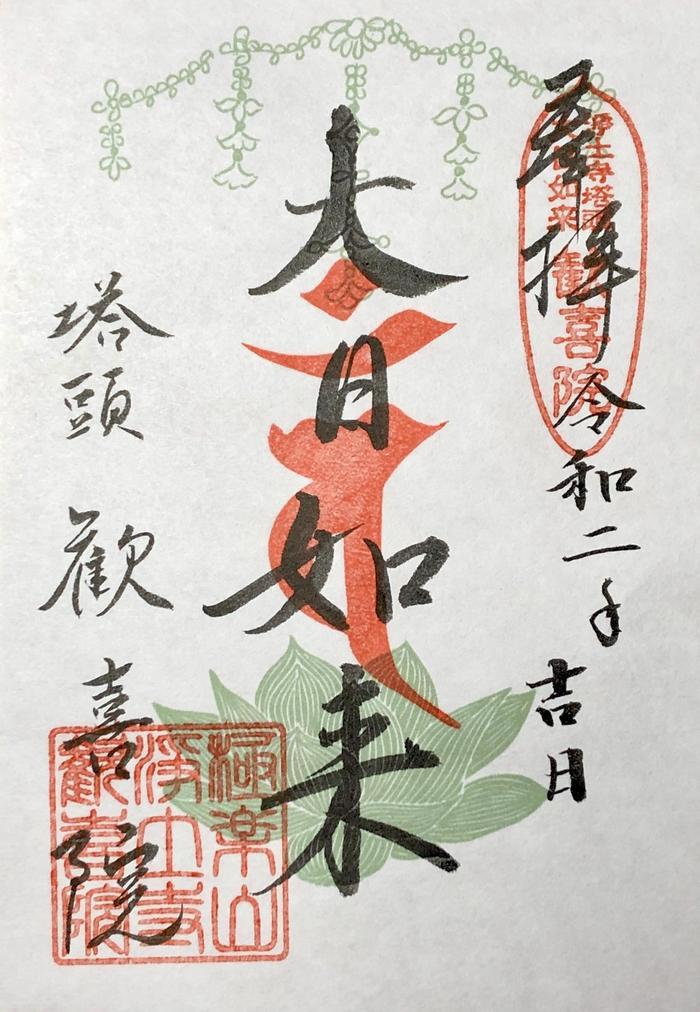 奉拝 令和二年 吉日
浄土寺塔頭
大日如来
歓喜院
大日如来
塔頭 歓喜院
極楽山
浄土寺
歓喜院